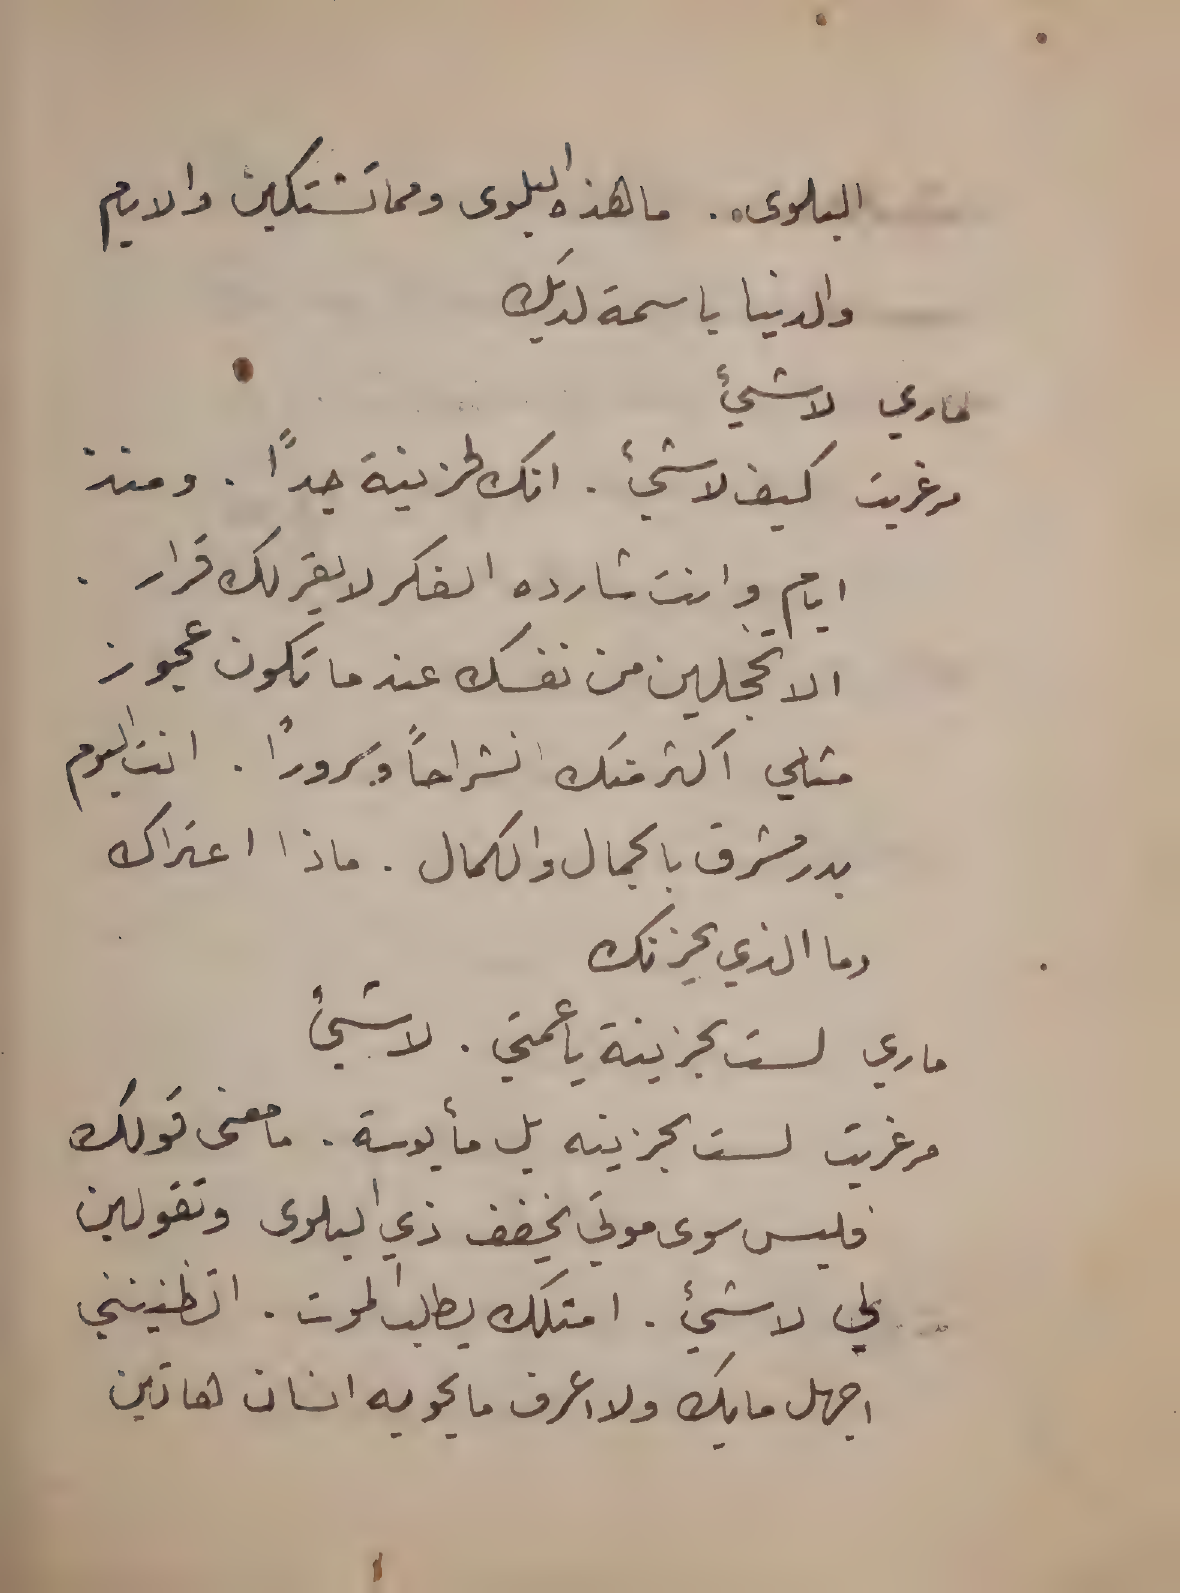 البلوى . ما هذه البلوى ومما تشتكين والايام
والدنيا باسمة لديك
ماري لا شيئ
مرغريت كيف لا شيئ . انك لحزينة جداً . ومنذ
ايام وانت شارده الفكر لا يقر لك قرار .
الا تخجلين من نفسك عندما تكون عجوز
مثلي اكثر منك انشراحاً وسروراً . انت اليوم
بدر مشرق بالجمال والكمال . ماذا اعتراك
وما الذي يحزنك
ماري لست بحزينة يا عمتي . لا شيئ
مرغريت لست بحزينه بل مأيوسة . ما معنى قولك
فليس سوى موتي يخفف ذي البلوى وتقولين
لي لا شيئ . امثلك يطلب الموت . اتظنينني
اجهل ما بك ولا اعرف ما يحويه انسان هاتين